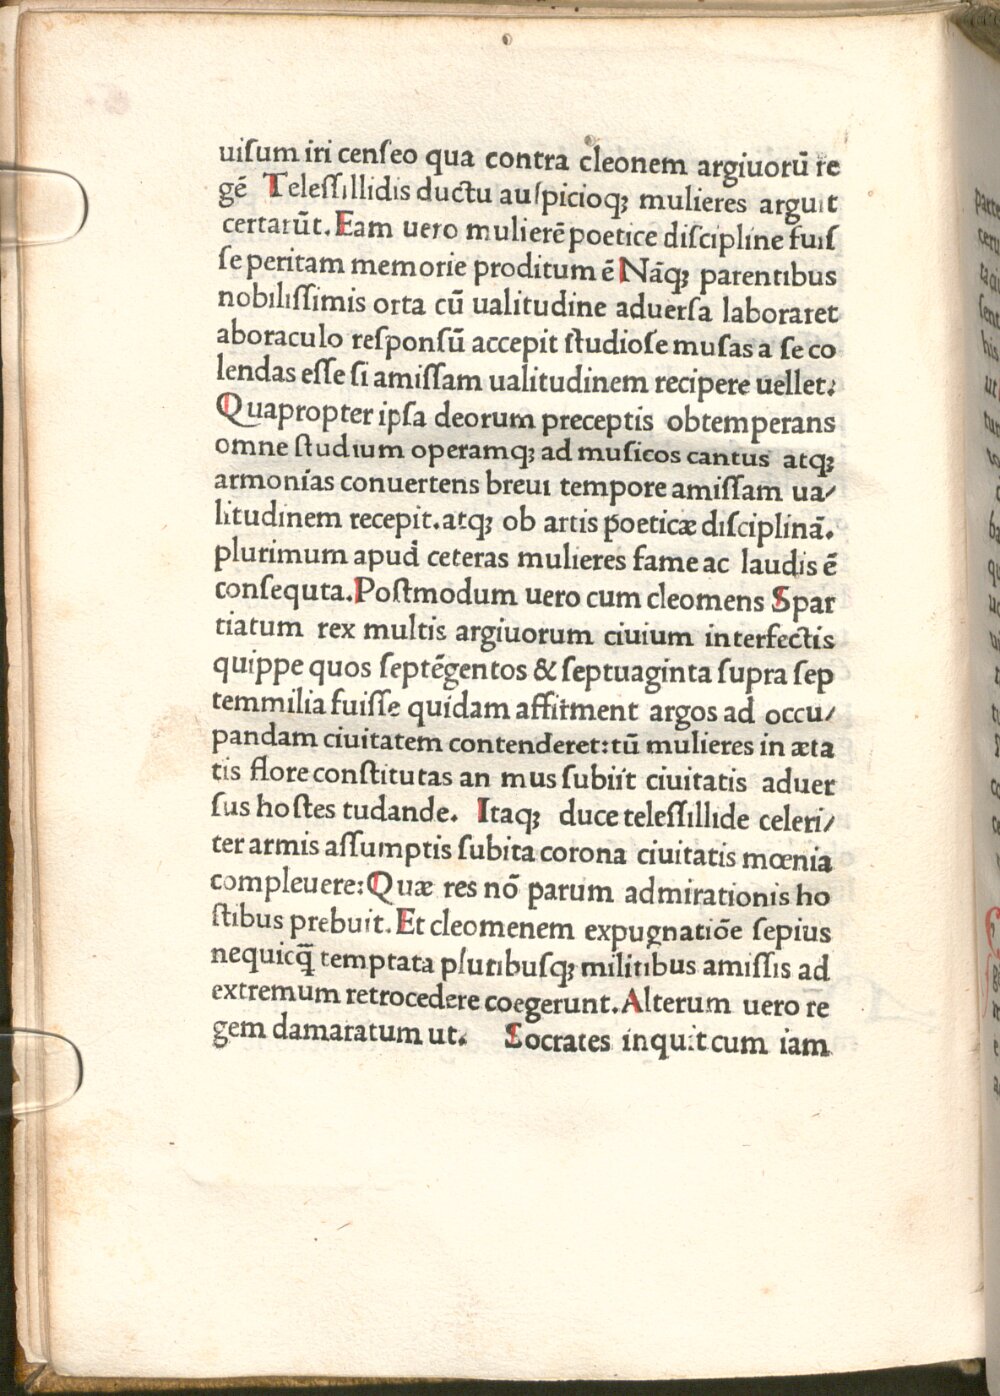 uiſum iri cenſeo qua contra cleonem argiuorū re
gē Teleſſillidis ductu auſpicioq; mulieres arguit
certarūt. Eam uero mulierē poetice diſcipline fuiſ
ſe peritam memorie proditum ē Nāq; parentibus
nobiliſſimis orta cū ualitudine aduerſa laboraret
aboraculo reſponſū accepit ſtudioſe muſas a ſe co
lendas eſſe ſi amiſſam ualitudinem recipere uellet:
Quapropter ipſa deorum preceptis obtemperans
omne ſtudium operamq; ad muſicos cantus atq;
armonías conuertens breui tempore amiſſam ua/
litudinem recepit. atq; ob artis poeticæ diſciplinā.
plurimum apud ceteras mulieres fame ac laudis ē
conſequta. Poſtmodum uero cum cleomens Spar
tiatum rex multis argiuorum ciuium interfectis
quippe quos ſeptēgentos & ſeptuaginta ſupra ſep
temmilia fuiſſe quidam affirment argos ad occu/
pandam ciuitatem contenderet: tū mulieres in æta
tis flore conſtitutas an mus ſubiit ciuitatis aduer
ſus hoſtes tudande. Itaq; duce teleſſillide celeri/
ter armis aſſumptis ſubita corona ciuitatis mœnia
compleuere: Quæ res nō parum admirationis ho
ſtibus prebuit. Et cleomenem expugnatiōe ſepius
nequicq̄ temptata pluribuſq; militibus amiſſis ad
extremum retrocedere coegerunt. Alterum uero re
gem damaratum ut. Socrates inquit cum iam